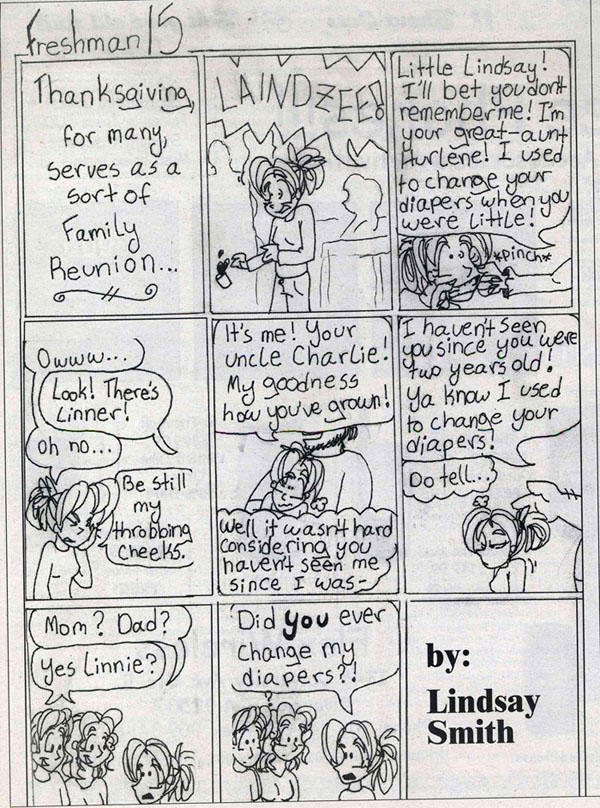 Freshman 15
Thanksgiving,
for many,
serves as a
sort of
Family
Reunion...
LAINDZEE!
Little Lindsay!
I'll bet you don't
remember me! I'm
your great-aunt
Hurlene! I used
to change your
diapers when you
were little!
*Pinch*
Owww...
Look! There's
Linner!
Oh no...
Be still
my
throbbing
cheeks.
It's me! Your
uncle Charlie!
My goodness
how you've grown!
Well it wasn't hard
considering you
haven't seen me
since I was-
I haven't seen
you since you were
two years old!
Ya know I used
to change your
diapers!
Do tell...
Mom? Dad?
Yes Linnie?
Did you ever
change my
diapers?!
?
by:
Lindsay
Smith